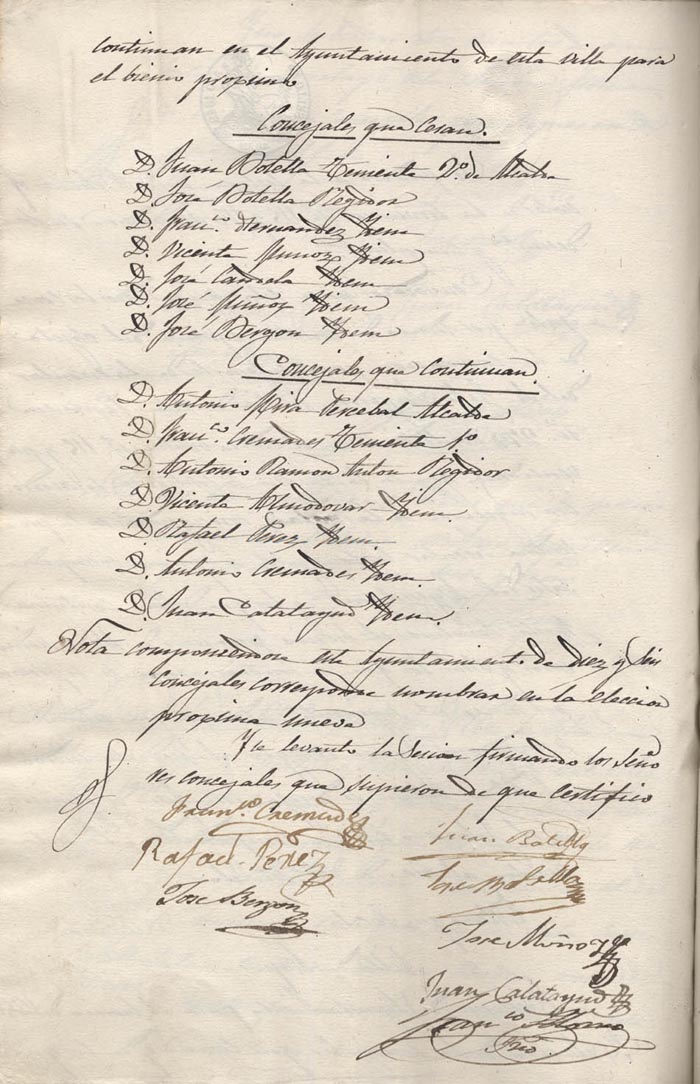 continuan en el Ayuntamiento de esta villa para
el bienio proximo
Concejales que Cesan.
D. Juan Botella Teniente 2º de Alcalde
D. José Botella Regidor
D. Franco Hernandez Ydem
D. Vicente Muñoz Ydem
D. José Candela Ydem
D. José Muñoz Ydem
D. José Berzon Ydem
Concejales que Continuan.
D. Antonio Mira Alcalde
D. Franco Cremades Teniente 1º
D. Antonio Ramon Anton Regidor
D. Vicente Almodovar Ydem.
D. Rafael Perez Ydem.
D. Antonio Cremades Ydem.
D. Juan Calatayud Ydem.
Nota componiendose este Ayuntamiento de diez y seis
concejales corresponde nombrar en la eleccion
proxima nueve
Y se levanto la Sesion firmando los Seño
res concejales que supieron de que certifico
Franco Cremades
Juan Botella
Rafael Perez
Jose Botella
Jose Berzon
Jose Muñoz
Juan Calatayud
Franco
Srio.